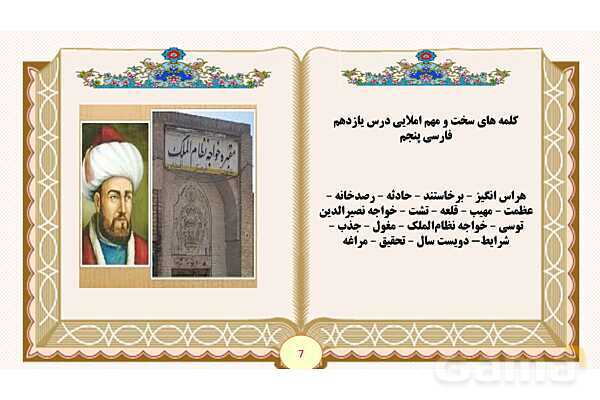 کلمه های سخت و مهم املایی درس یازدهم
فارسی پنجم
هراس انگیز - برخاستند - حادثه - رصدخانه -
عظمت - مهیب - قلعه - تشت - خواجه نصیرالدین
توسی - خواجه نظام‌الملک - مغول - جذب -
شرایط– دویست سال - تحقیق - مراغه
مقبره خواجه نظام الملک
7
Gama